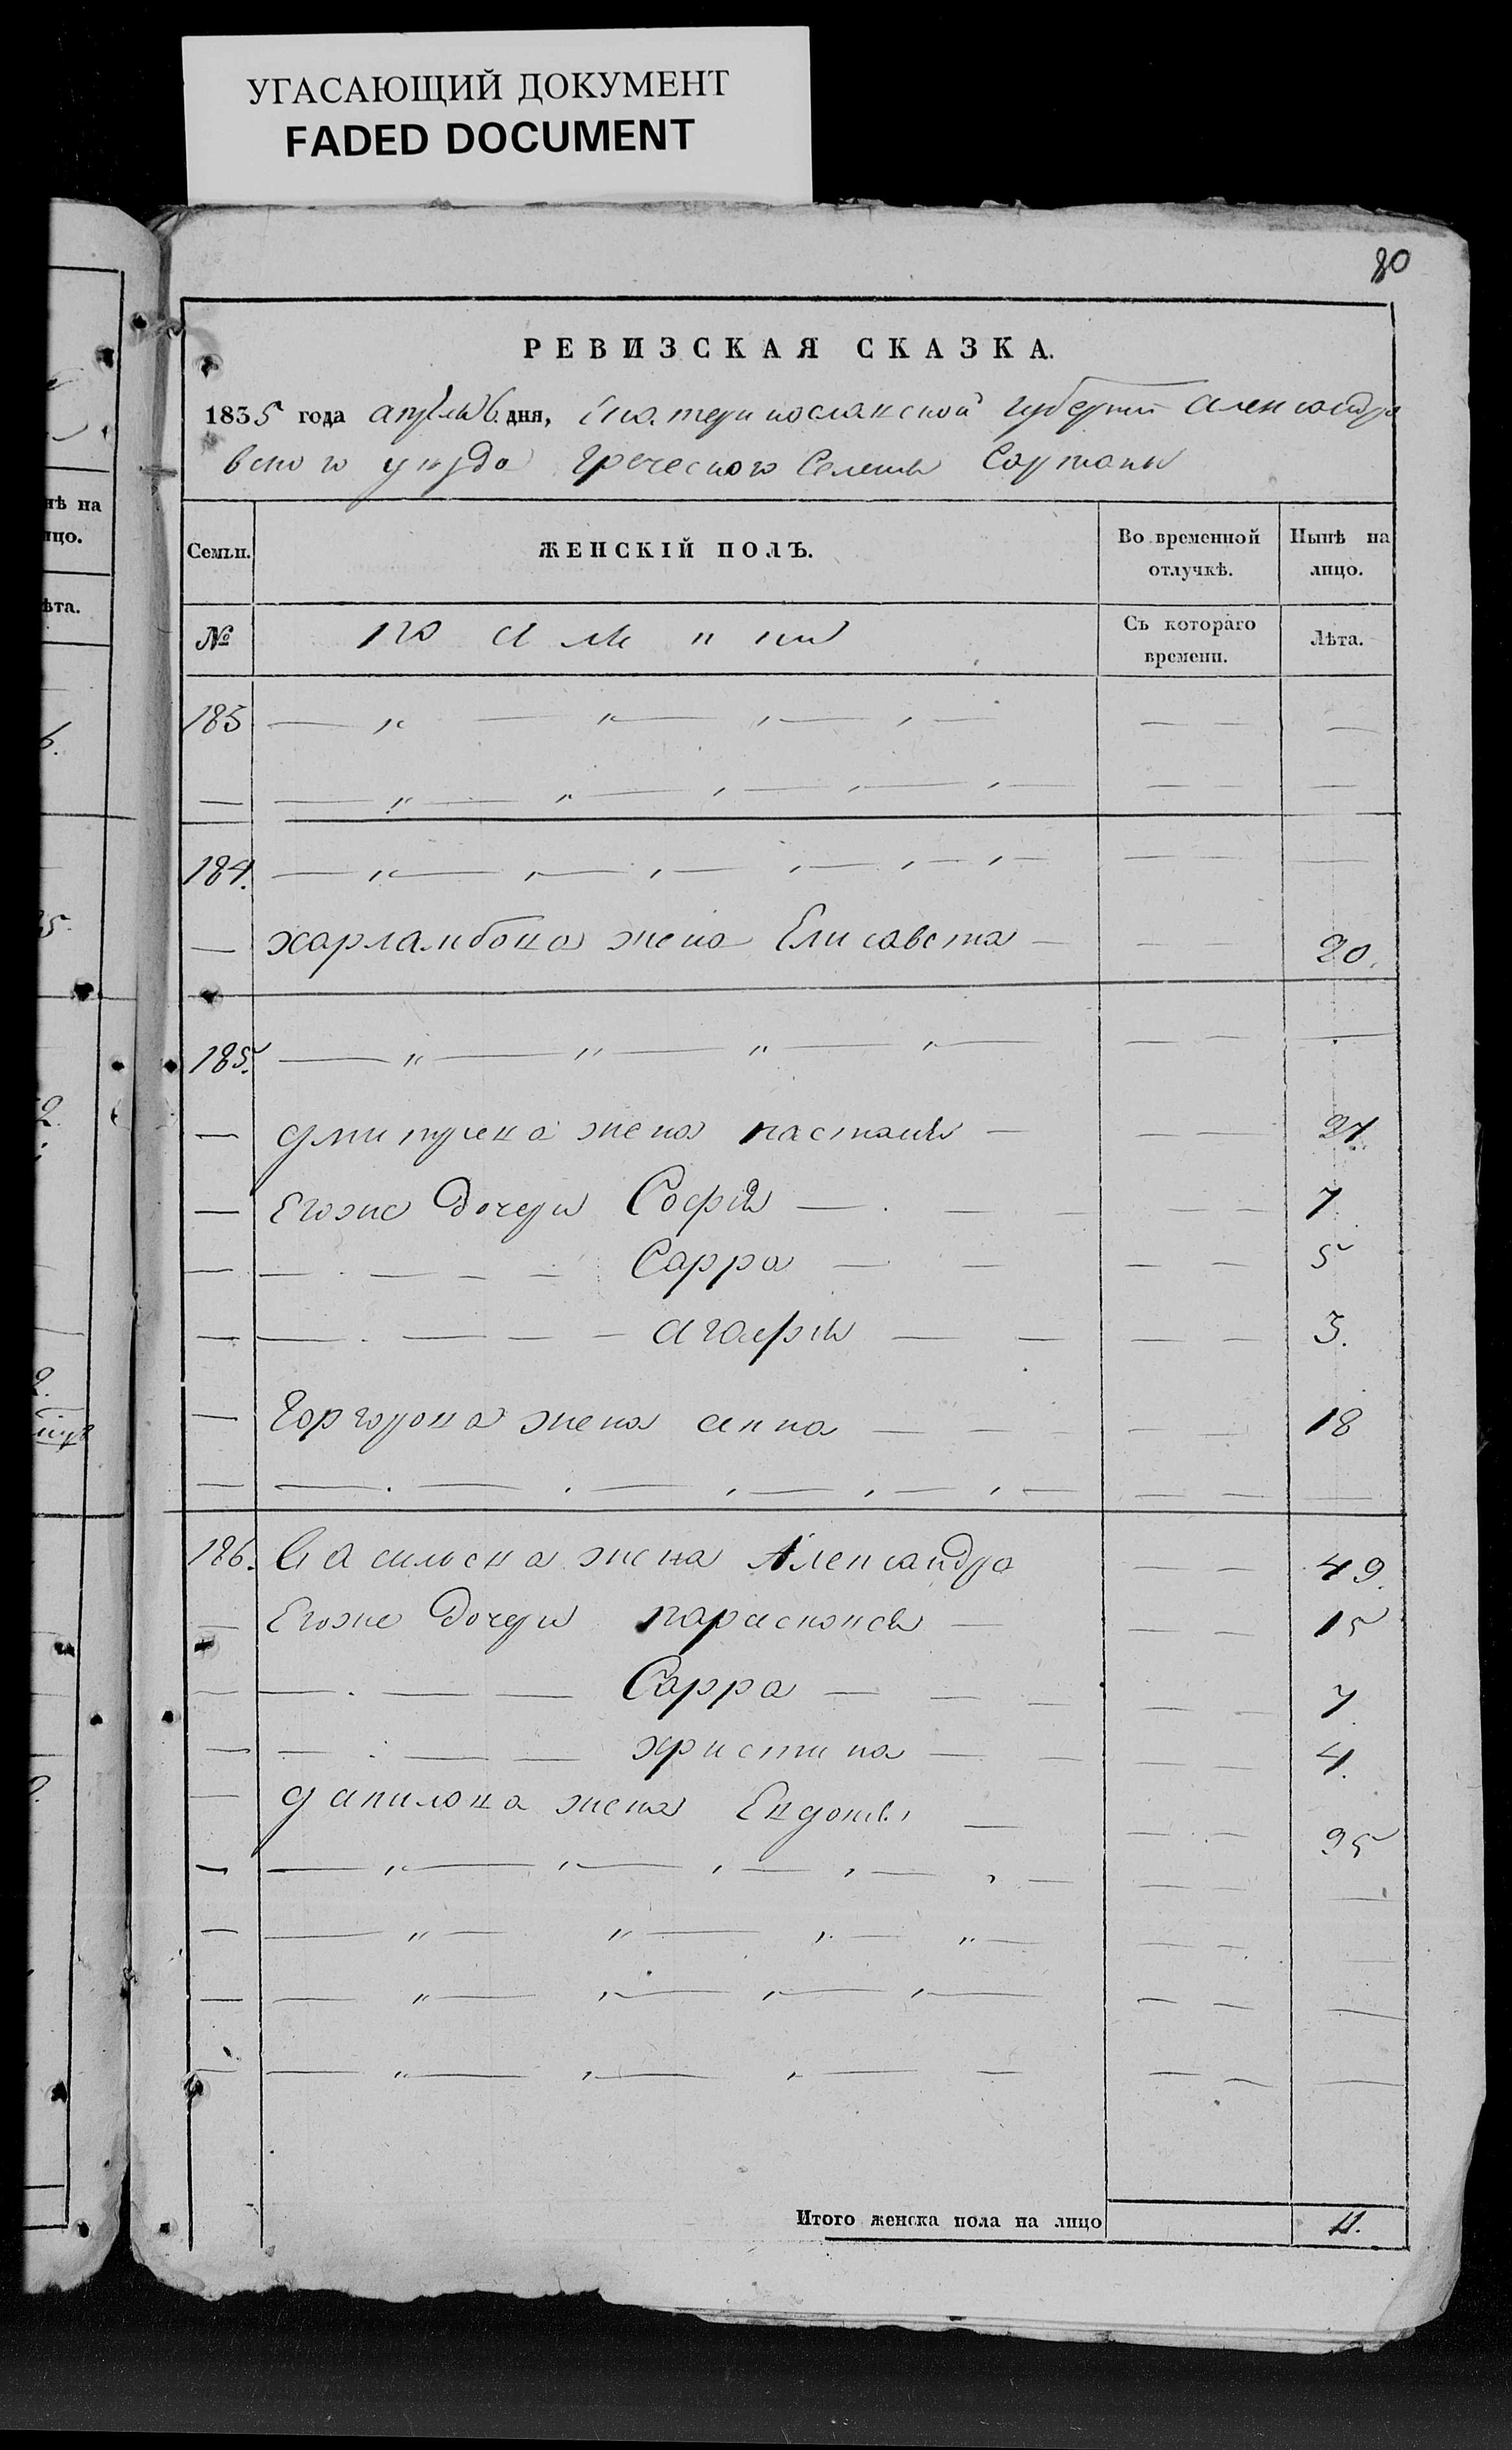 УГАСАЮЩИЙ ДОКУМЕНТ
FADED DOCUMENT
80
РЕВИЗСКАЯ СКАЗКА.
1835 года апрѣля 6. дня, Екатеринославской губернии Александро
вского уезда Греческого Селения Сартаны
Семьи. ЖЕНСКІЙ ПОЛЪ. Во временной отлучкѣ. Нынѣ на лицо.
№ Съ котораго времени. Лѣта.
183
184.
харламбова жена Елисавета 20.
185.
дмитрева жена настасия
Егоже дочери София 7
Сарра 5
агафия 3.
Горгорова жена анна 18
186. Васильева жена Александра 49.
Егоже дочери парасковея 15
Сарра 7
христина 4.
данилова жена Евдокия
Итого женска пола на лицо 11.
нѣ на
ицо.
ѣта.